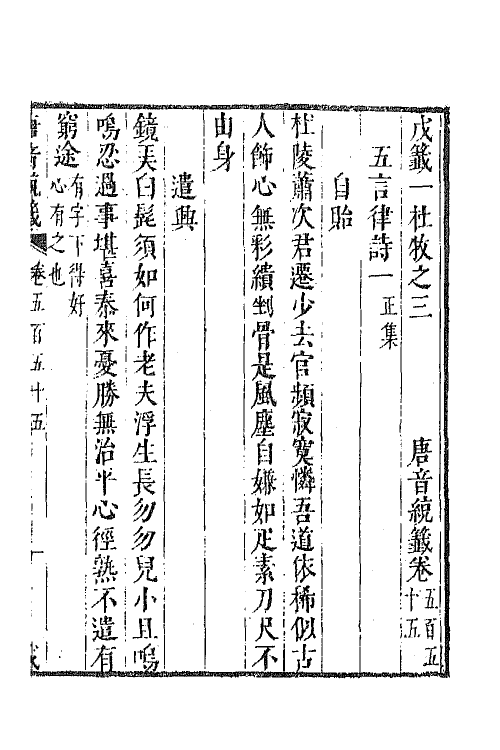 戊籤一杜牧之三 唐音統籤卷五百五十五
五言律詩一正集
自貽
杜陵蕭次君遷少去官頻寂寞憐吾道依稀似古
人飾心無彩繢到骨是風塵自嫌如疋素刀尺不
由身
遣興
鏡美白髭須如何作老夫浮生長勿勿兒小且嗚
嗚忍過事堪喜泰來憂勝無治平心徑熟不遣有
窮途有字下得好心有之也
唐音統籤 卷五百五十五